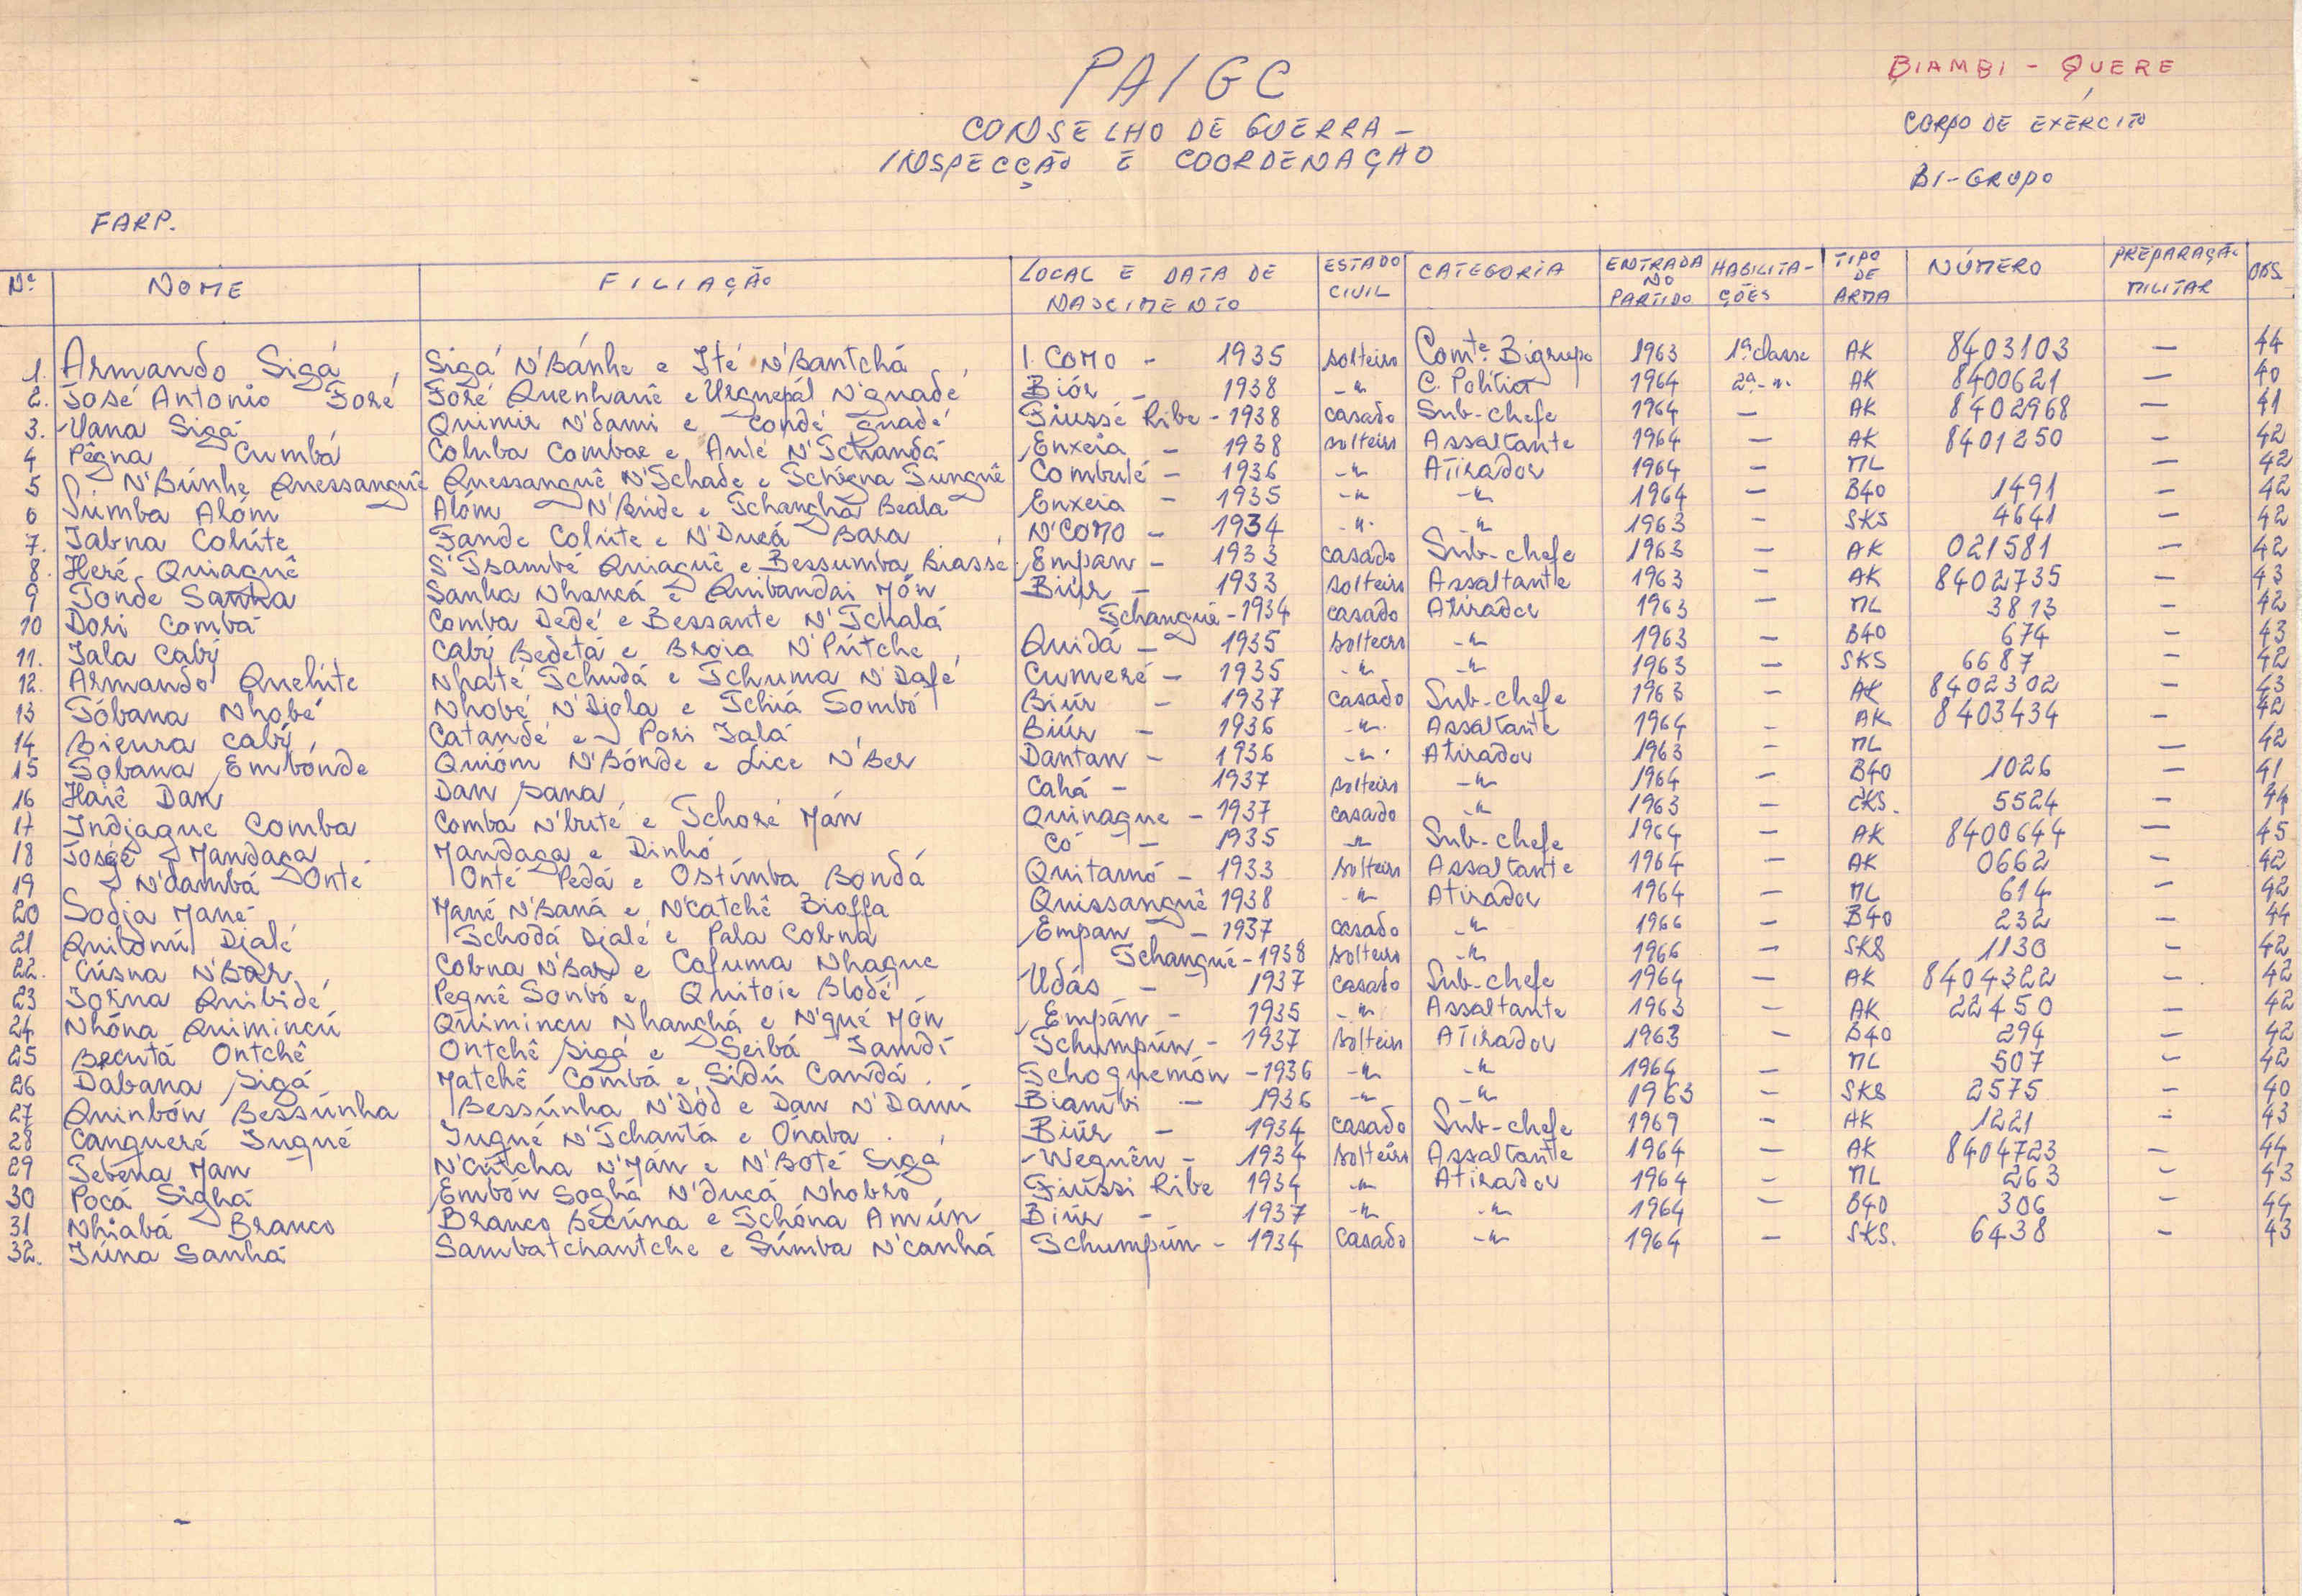 PAIGC
BIAMBI - QUERE
CONSELHO DE GUERRA -
CORPO DE EXÉRCITO
INSPECÇÃO E COORDENAÇÃO
BI-GRUPO
FARP.
Nº NOME FILIAÇÃO LOCAL E DATA DE NASCIMENTO ESTADO CIVIL CATEGORIA ENTRADA NO PARTIDO HABILITAÇÕES TIPO DE ARMA NÚMERO PREPARAÇÃO MILITAR OBS.
1. Armando Sigá Sigá N'Bánhe e Ité N'Bantchá I. Como - 1935 solteiro Comte. Bigrupo 1963 1ª classe AK 8403103 — 44
2. José Antonio Foré Foré Quenhanê e N'guadé Biór - 1938 -"- C. Politico 1964 2ª -"- AK 8400621 — 40
3. Uana Sigá Quimir N'dami e Tondé guadé Fiussé Ribe - 1938 casado Sub-chefe 1964 — AK 8402968 — 41
4 Pêgna Cumbá Coluba Combae e Anté N'Tchandá Enxeia - 1938 solteiro Assaltante 1964 — AK 8401250 — 42
5 N'Búnhe Quessanguê Quessanguê N'Tchade e Tchigna Tunguê Combulé - 1936 -"- Atirador 1964 — ML — 42
6 Sumba Alóm Alóm N'Binde e Tchanghá Beala Enxeia - 1935 -"- -"- 1964 — B40 1491 — 42
7. Tabna Colúte Fande Colúte e N'Ducá Basa N'Como - 1934 -"- -"- 1963 — SKS 4641 — 42
8. Heré Quiaguê S'Tsambé Quiaguê e Bessumba Biasse Empan - 1933 casado Sub-chefe 1963 — AK 021581 — 42
9 Tonde Sanha Sanha Nhancá e Quibandai Món Biúr - 1933 solteiro Assaltante 1963 — AK 8402735 — 43
10 Dori Combá Comba Dedé e Bessante N'Tchalá Tchangué - 1934 casado Atirador 1963 — ML 3813 — 42
11. Iala Cabý Cabý Bedetá e Broia N'Pútche Quidá - 1935 solteiro -"- 1963 — B40 674 — 43
12. Armando Quelúte Nhaté Tchudá e Tchuma N'Dafé Cumeré - 1935 -"- -"- 1963 — SKS 6687 — 42
13 Tóbana Nhobé Nhobé N'Djola e Tchiá Sombó Biúr - 1937 casado Sub-chefe 1963 — AK 8402302 — 43
14 Bicura Cabý Catandé e Pori Ialá Biúr - 1936 -"- Assaltante 1964 — AK 8403434 — 42
15 Tobana Embonde Quióm N'Bónde e Lice N'Ber Dantan - 1936 -"- Atirador 1963 — ML — 42
16 Haiê Dan Dan Sana Cahá - 1937 solteiro -"- 1964 — B40 1026 — 41
17 Indjague Comba Comba N'buté e Tchoré Mán Quinaque - 1937 casado -"- 1963 — CKS. 5524 — 44
18 José Mandaga Mandaga e Dinhó Có - 1935 -"- Sub-chefe 1964 — AK 8400644 — 45
19 N'dambá Onté Onté Pedá e Ostimba Bondá Quitamó - 1933 solteiro Assaltante 1964 — AK 0662 — 42
20 Sodja Mané Mané N'Baná e N'catchê Bioffa Quissanguê 1938 -"- Atirador 1964 — ML 614 — 42
21 Quitonú Djalé Tchodá Djalé e Pala Cobna Empan - 1937 casado -"- 1966 — B40 232 — 44
22. Cúsna N'Bar Cobna N'Bar e Cofuma Nhague Tchangué - 1938 solteiro -"- 1966 — SKS 1130 — 42
23 Iorna Quibidé Pegnê Sonbó e Quitoie Blodé Udás - 1937 casado Sub-chefe 1964 — AK 8404322 — 42
24 Nhóna Quimincú Quimincu Nhanghá e N'qué Món Empán - 1935 -"- Assaltante 1963 — AK 22450 — 42
25 Becutá Ontchê Ontchê Sigá e Seibá Iamdi Tchumpún - 1937 solteiro Atirador 1963 — B40 294 — 42
26 Dabana Sigá Matchê Combá e Sidú Candá. Tchoquemón - 1936 -"- -"- 1964 — ML 507 — 42
27 Quinbón Bessúnha Bessúnha N'Dód e Dan N'Danú Biambi - 1936 -"- -"- 1963 — SKS 2575 — 40
28 Cangueré Iugué Iugué N'Tchantá e Onaba. Biúr - 1934 casado Sub-chefe 1969 — AK 1221 — 43
29 Tebena Man N'Cútcha N'Mán e N'Boté Sigá Wequên - 1934 solteiro Assaltante 1964 — AK 8404723 — 44
30 Pocá Sighá Embón Soghá N'ducá Nhobró Fiússi Ribe 1934 -"- Atirador 1964 — ML 263 — 43
31 Nhiabá Branco Branco Becúna e Tchóna Amún Biúr - 1937 -"- -"- 1964 — B40 306 — 44
32. Iúna Sanhá Sambatchantche e Súmba N'canhá Tchumpún - 1934 casado -"- 1964 — SKS. 6438 — 43